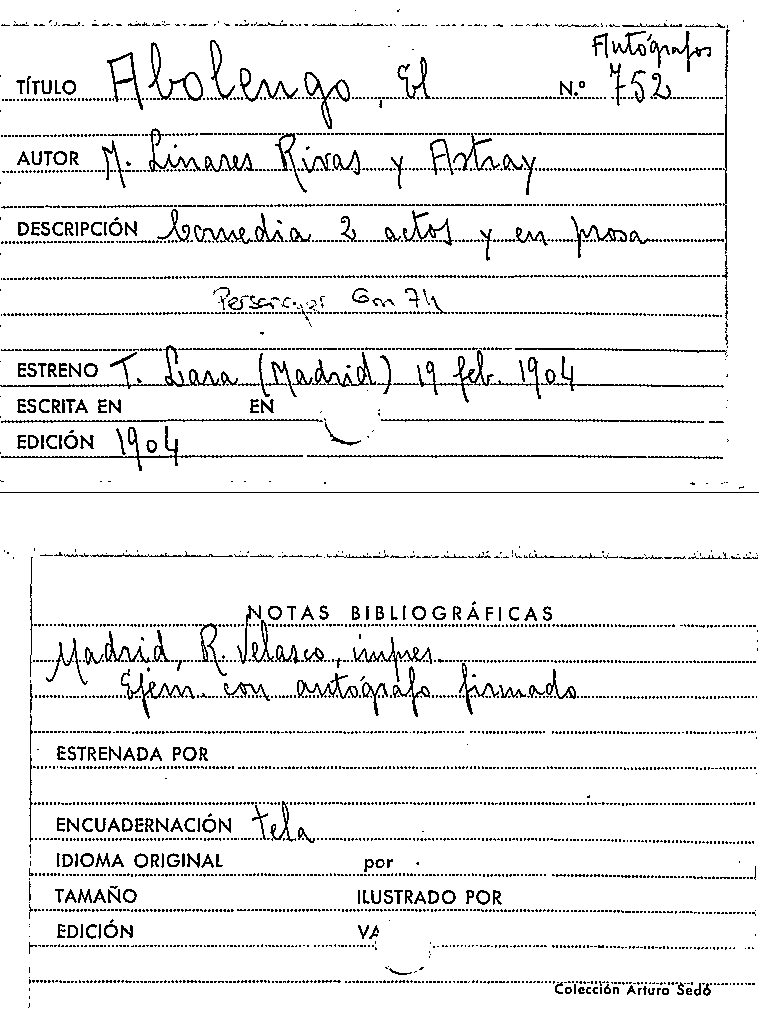 Autógrafos
TÍTULO Abolengo, El N.º 752
AUTOR M. Linares Rivas y Astray
DESCRIPCIÓN Comedia 2 actos y en prosa
Personajes 6m 7h
ESTRENO T. Lara (Madrid) 19 feb. 1904
ESCRITA EN EN
EDICIÓN 1904
NOTAS BIBLIOGRÁFICAS
Madrid, R. Velasco, impres.
Ejem. con autógrafo firmado
ESTRENADA POR
ENCUADERNACIÓN tela
IDIOMA ORIGINAL por
TAMAÑO ILUSTRADO POR
EDICIÓN
Colección Arturo Sedó